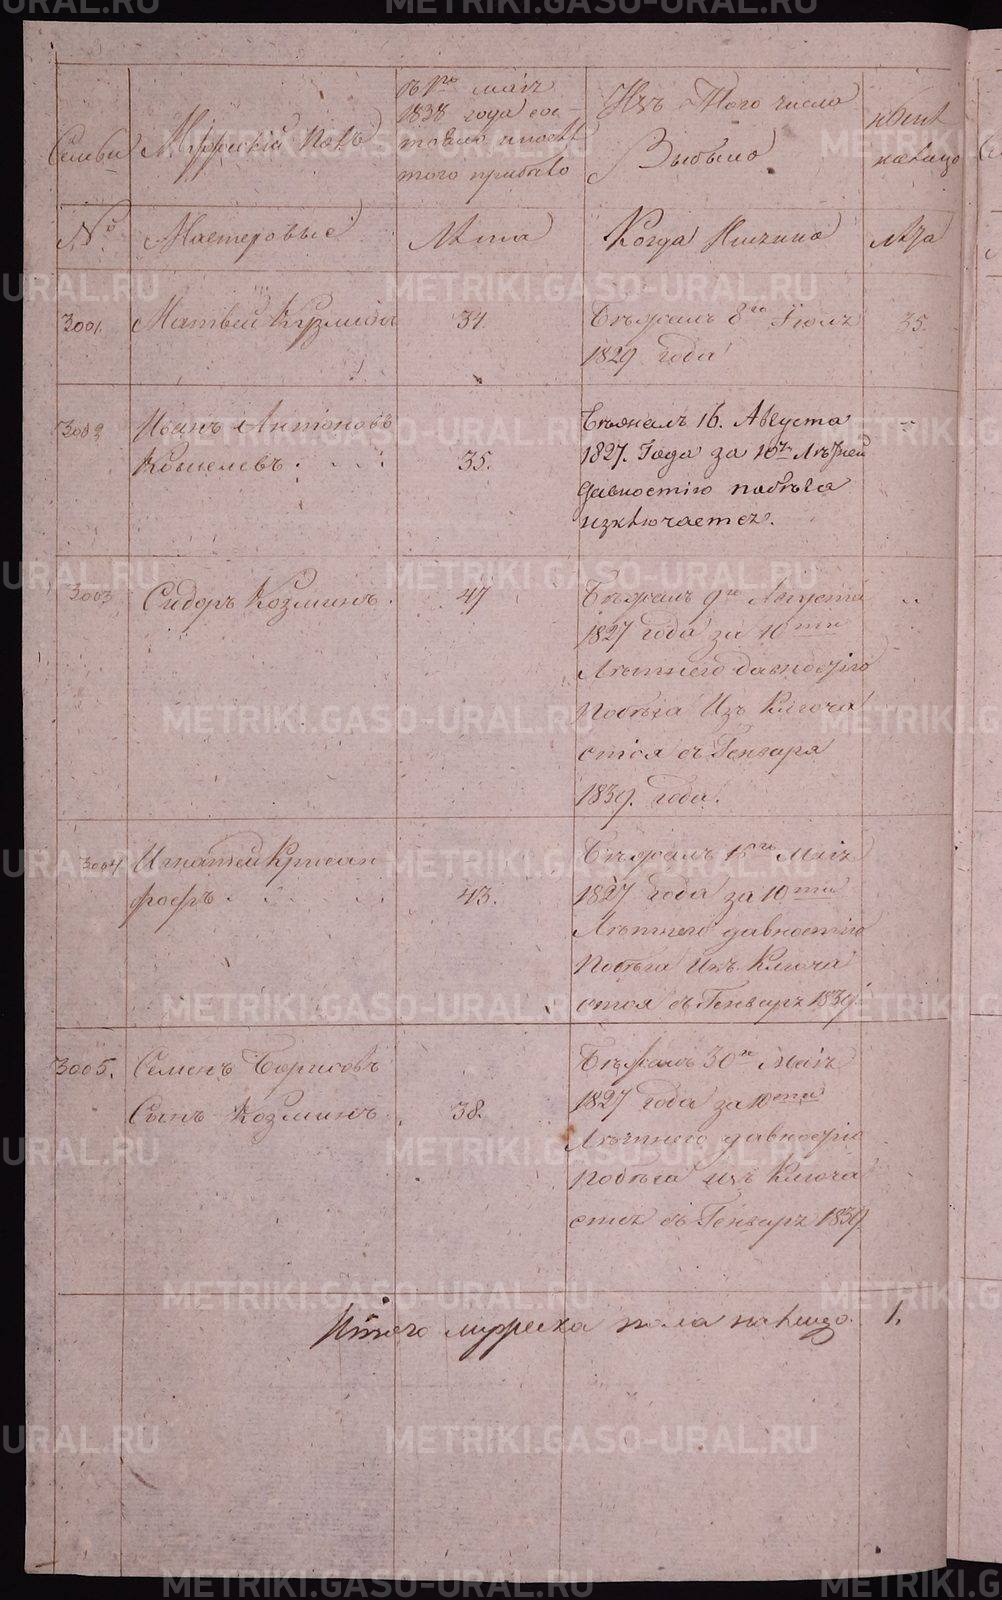 Семьи
Мужескій полъ
1838 года сос
того прибыло
Изъ того числа
Выбыло
налицо
№
Мастеровые
Лѣта
Когда Имянно
лѣта
3001.
Матвей Кузминъ
34.
Бѣжалъ 8го Іюля
35.
1829 года
3002
Иванъ Антоновъ
Кошелевъ. . . .
35.
Бѣжалъ 16. Августа
1827. Года за 10ти Лѣтней
давностію побѣга
изключается.
3003
Сидоръ Козминъ.
47
Бѣжалъ 9го Августа
1827 года за 10ти
Лѣтнего давностію
Побѣга Изъ Ключа
ется съ Генваря
1839. года.
3004
Игнатей Крисан
фовъ . . . .
43.
Бѣжалъ 15го Маія
1827 года за 10ти
Лѣтнего давностію
Побѣга Изъ Ключа
ется съ Генваря 1839.
3005.
Семенъ Борисовъ
Сынъ Козминъ.
38.
Бѣжалъ 30го Маія
1827 года за 10ти
Лѣтнего давностію
Побѣга изъ Ключа
ется съ Генваря 1839.
Итого мужеска пола налицо. 1.
METRIKI.GASO-URAL.RU